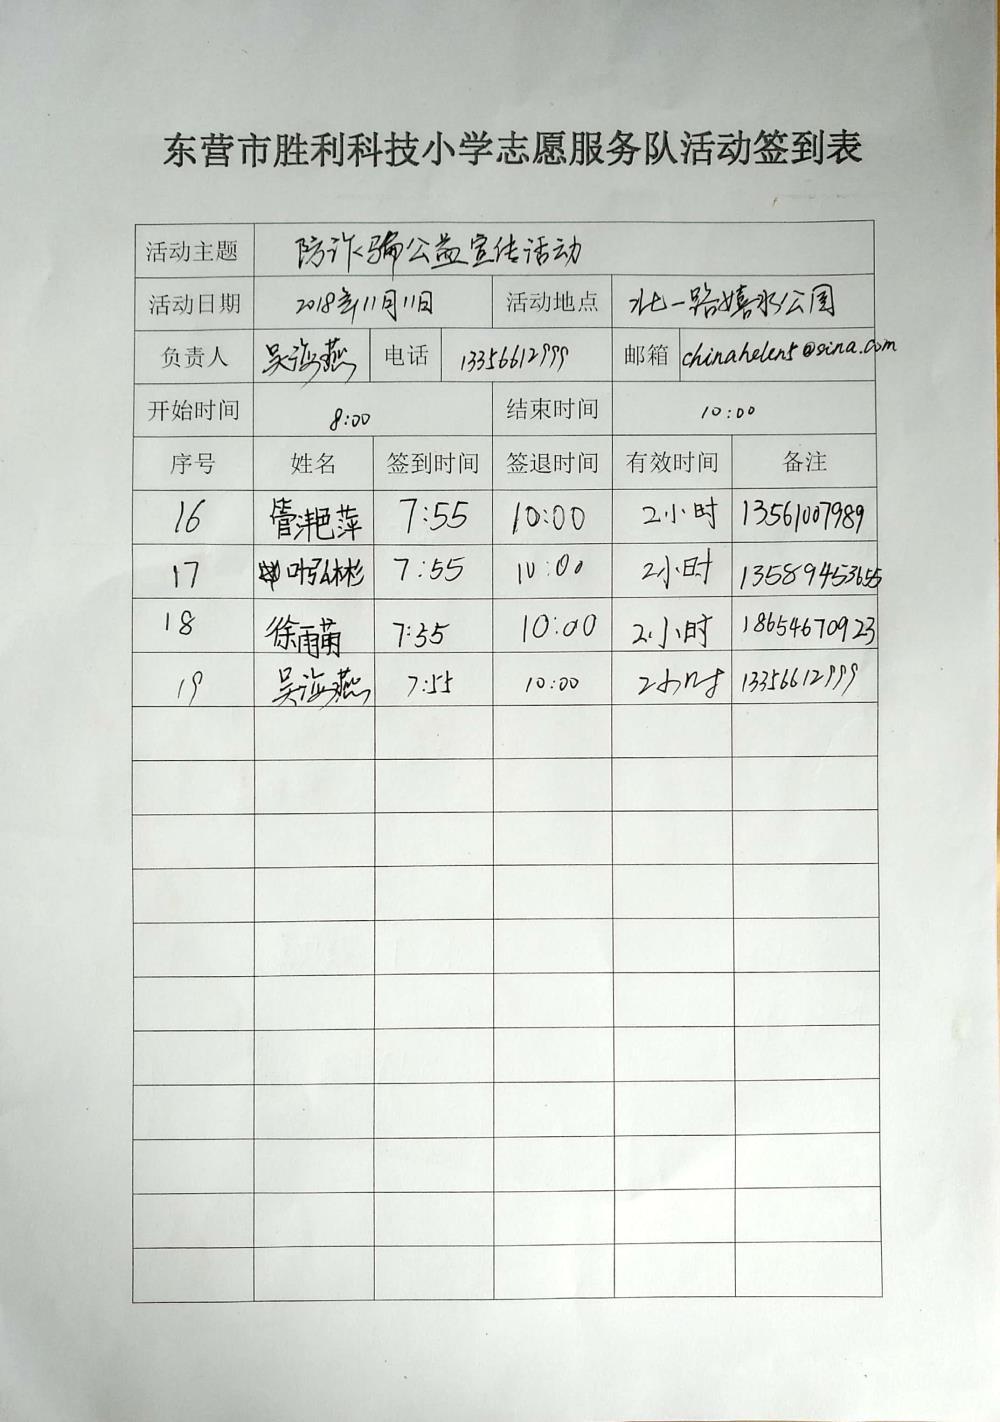 东营市胜利科技小学志愿服务队活动签到表
活动主题 防诈骗公益宣传活动
活动日期 2018年11月11日 活动地点 北一路嬉水公园
负责人 吴海燕 电话 13356612999 邮箱 chinahelen5@sina.com
开始时间 8:00 结束时间 10:00
序号 姓名 签到时间 签退时间 有效时间 备注
16 管滟萍 7:55 10:00 2小时 13561007989
17 叶弘彬 7:55 10:00 2小时 13589453655
18 徐雨萌 7:35 10:00 2小时 18654670923
19 吴海燕 7:55 10:00 2小时 13356612999